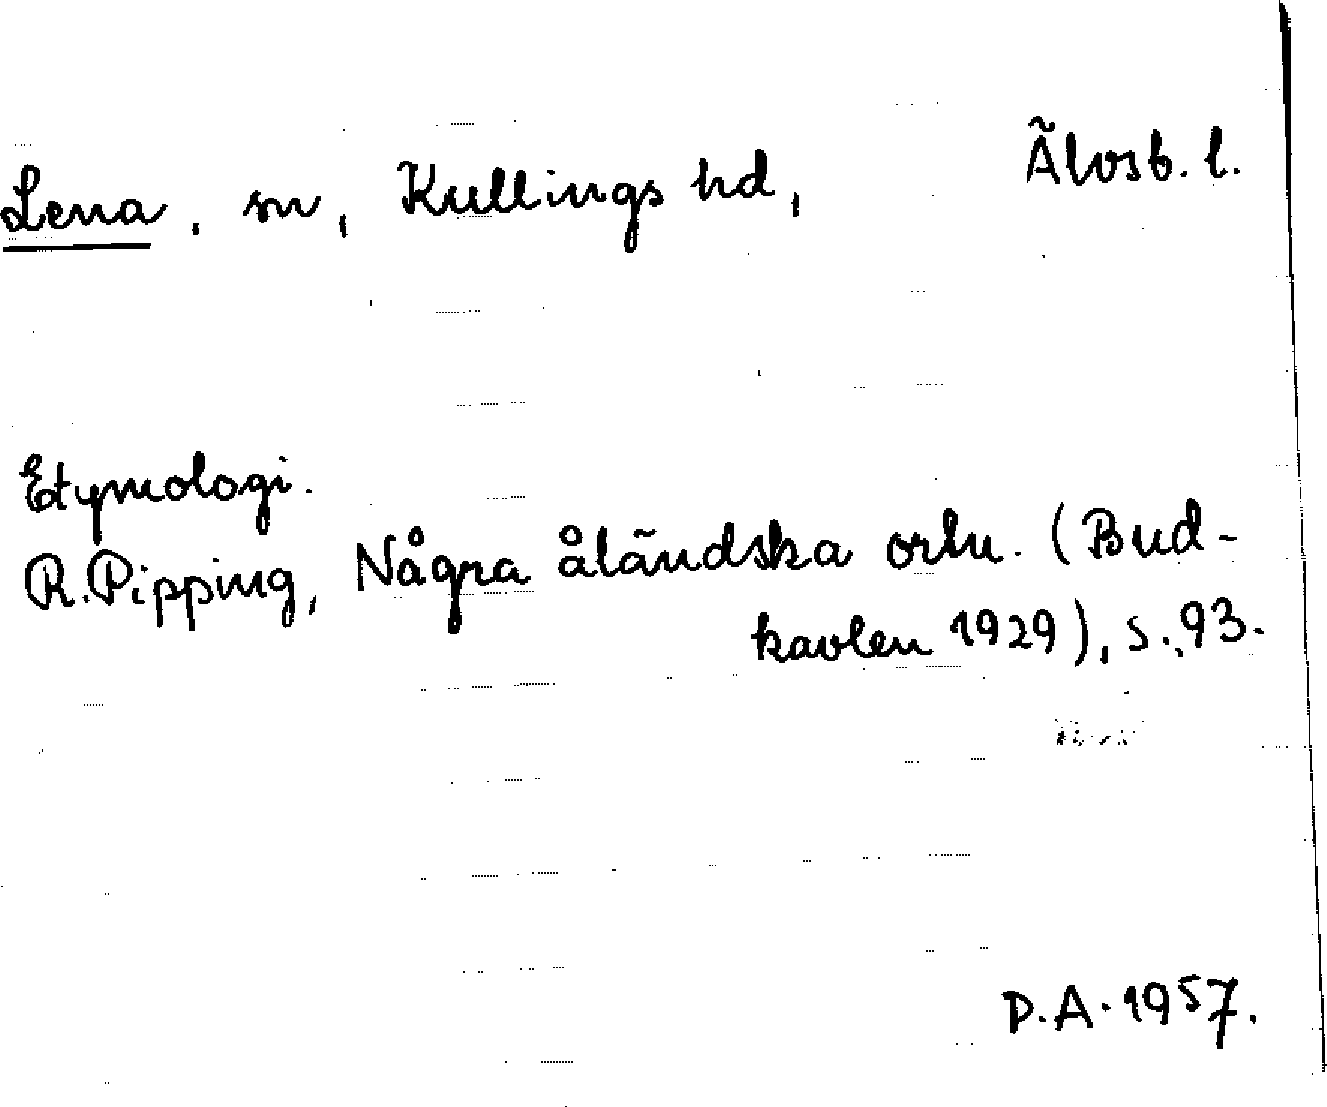 Lena, sn, Kullings hd, Älvsb. l.
Etymologi.
R. Pipping, Några åländska ortn. (Bud-
kavlen 1929), s. 93.
D.A. 1957.